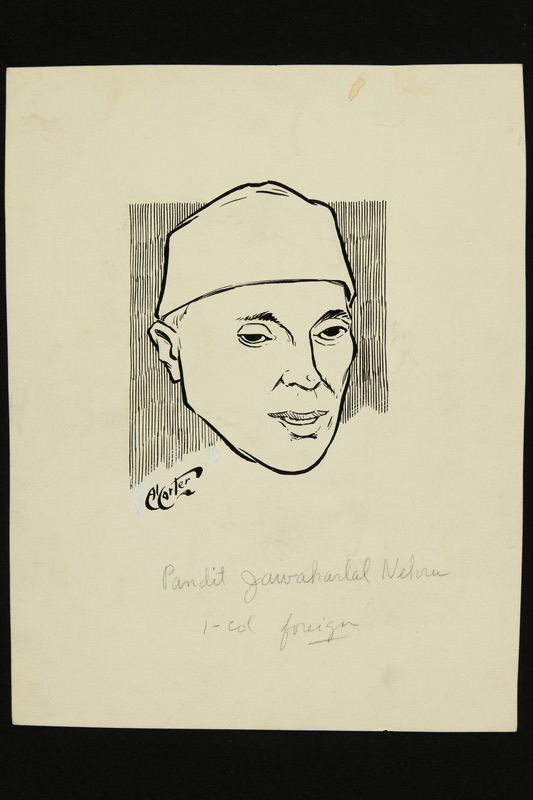 Al Carter
Pandit Jawaharlal Nehru
1-col foreign